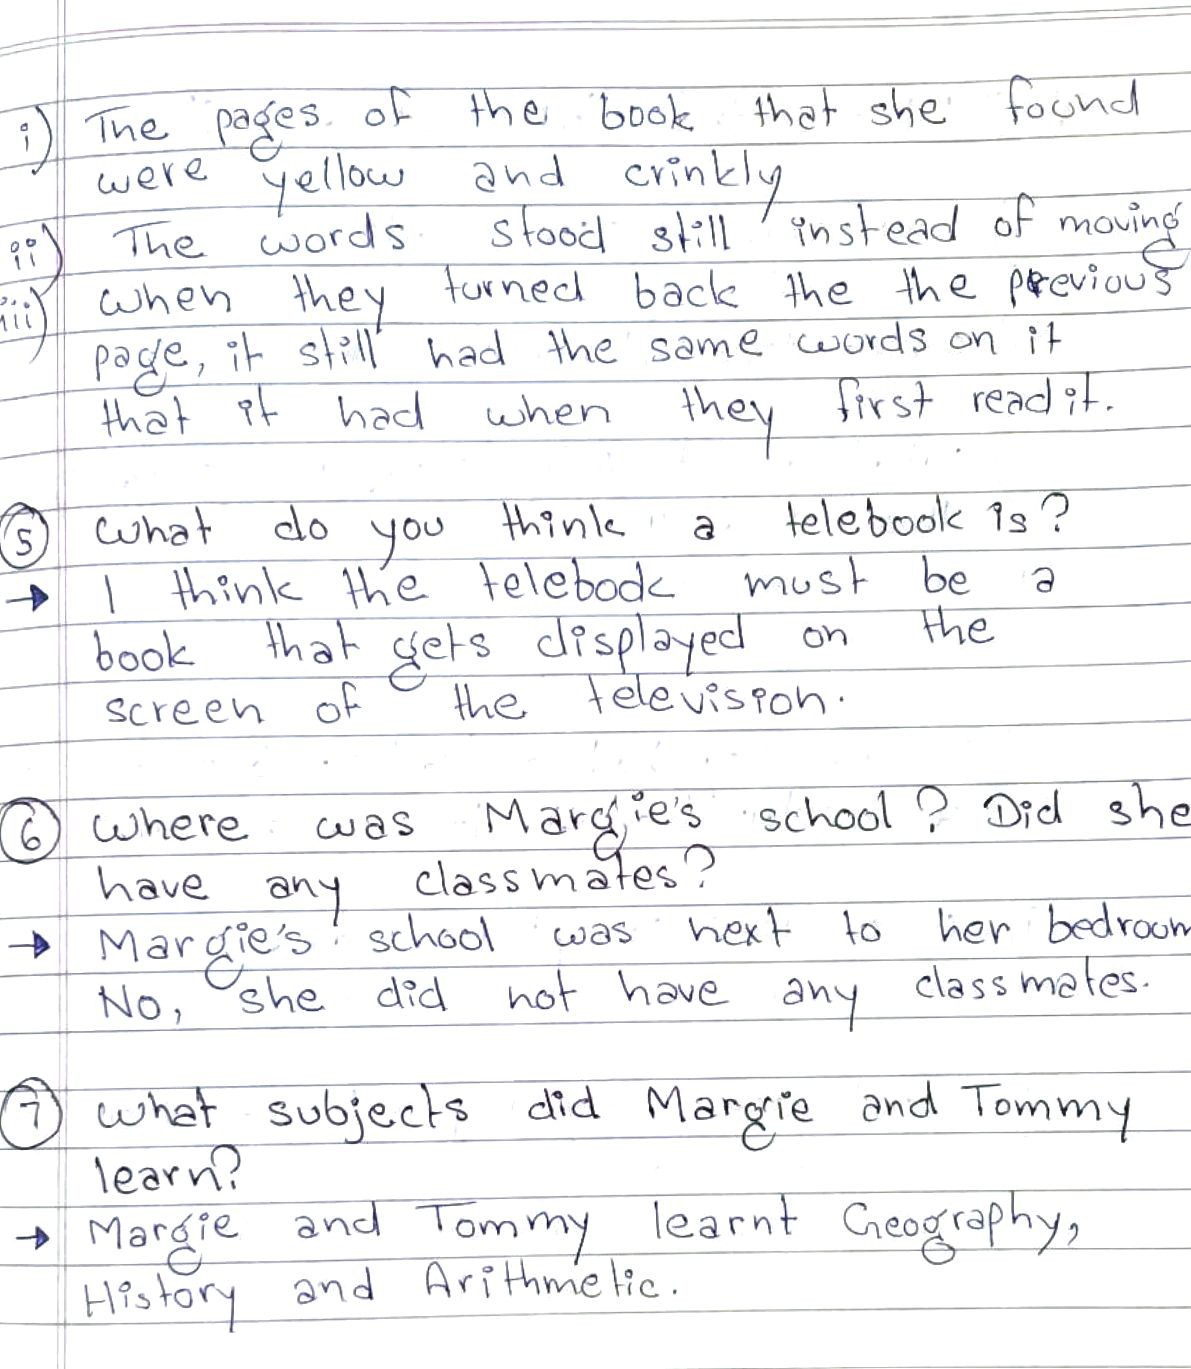 i) The pages of the book that she found
were yellow and crinkly
ii) The words stood still instead of moving
iii) when they turned back the the previous
page, it still had the same words on it
that it had when they first read it.
5 What do you think a telebook is?
→ I think the telebook must be a
book that gets displayed on the
screen of the television.
6 Where was Margie's school? Did she
have any classmates?
→ Margie's school was next to her bedroom
No, she did not have any classmates.
7 What subjects did Margie and Tommy
learn?
→ Margie and Tommy learnt Geography,
History and Arithmetic.